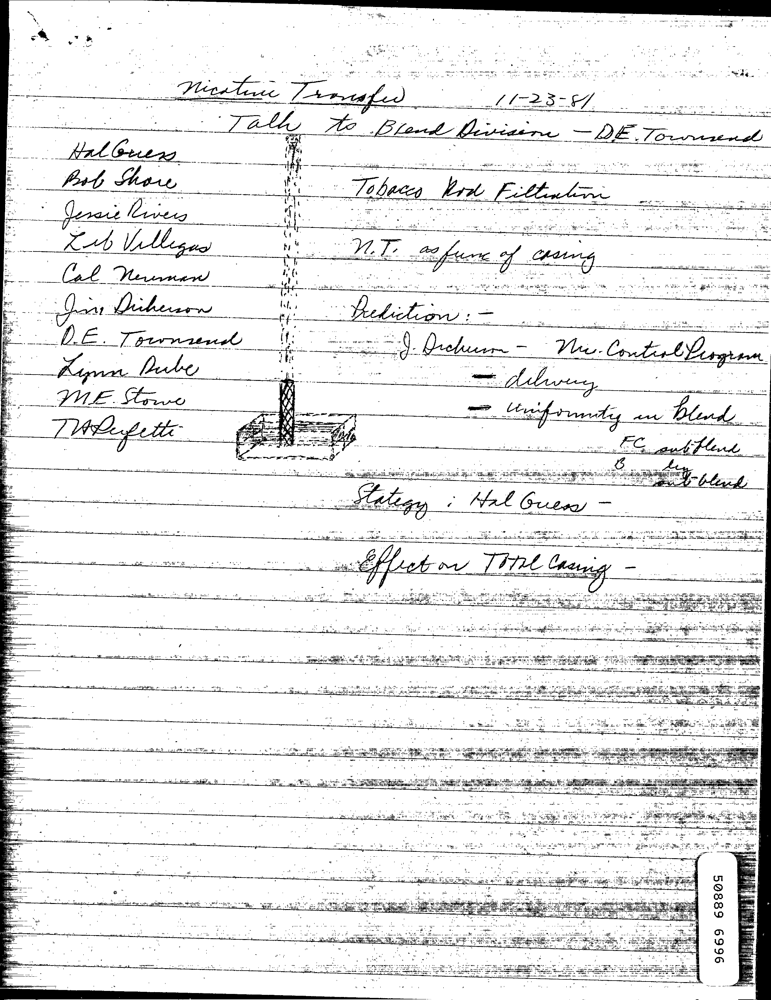 Nicotine Transfer 11-23-81
Talk to Blend Division - D.E. Townsend
Hal Guess
Bob Shore
Jessie Rivers
Lib Villegas
Cal Neuman
Jim Dickerson
D.E. Townsend
Lynn Dube
M.E. Stowe
TAPerfetti
Tobacco Rod Filtration
N.T. as func of casing
Prediction : -
J. Dickerson - Nic. Control Program
- delivery
- uniformity in blend
FC sub blend
B sub-blend
Stategy : Hal Guess -
Effect on Total Casing -
50889 6996